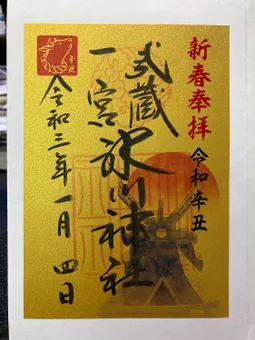 新春奉拝
令和辛丑
武蔵
一宮氷川神社
令和三年一月四日